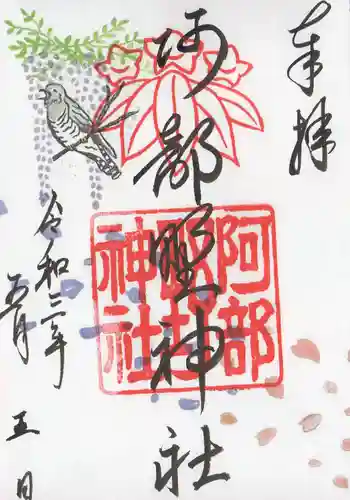 奉拝
阿部野神社
阿部
野
神社
令和三年
五月
五日